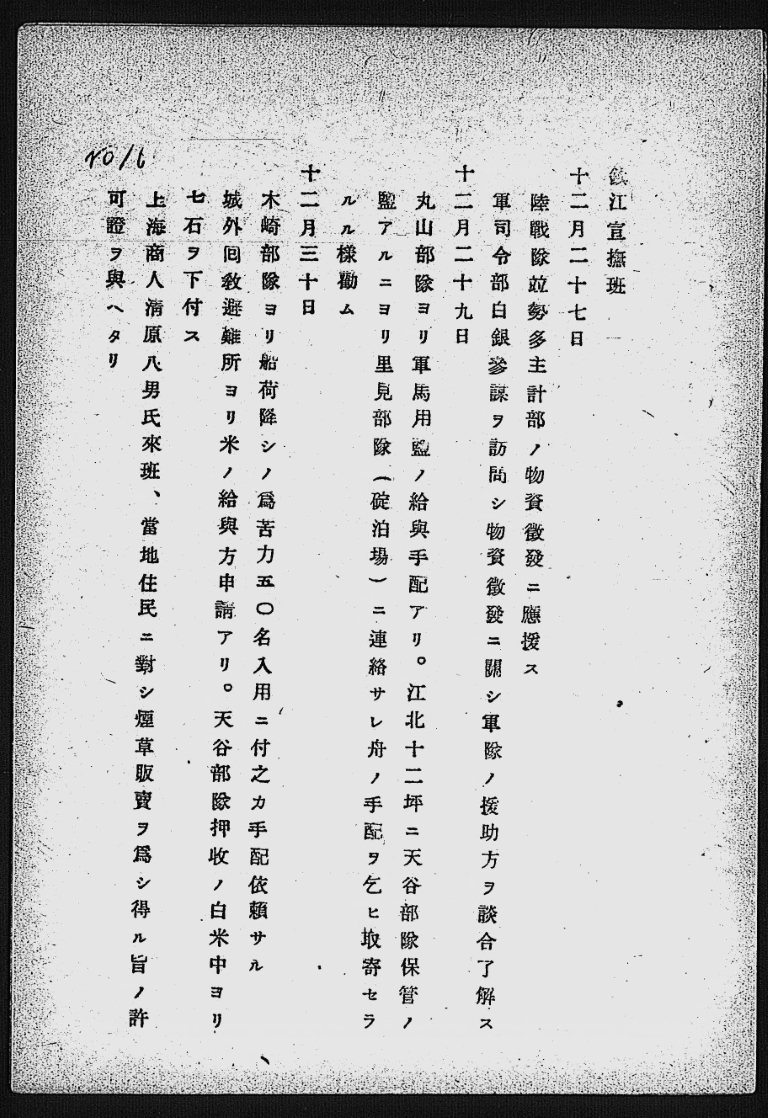 鎭江宣撫班
十二月二十七日
陸戰隊竝勢多主計部ノ物資徵發ニ應援ス
軍司令部白銀參謀ヲ訪問シ物資徵發ニ關シ軍隊ノ援助方ヲ談合了解ス
十二月二十九日
丸山部隊ヨリ軍馬用鹽ノ給與手配アリ。江北十二坪ニ天谷部隊保管ノ
鹽アルニヨリ里見部隊(碇泊場)ニ連絡サレ舟ノ手配ヲ乞ヒ取寄セラ
ルル樣勸ム
十二月三十日
木崎部隊ヨリ船荷降シノ爲苦力五〇名入用ニ付之カ手配依賴サル
城外囘敎避難所ヨリ米ノ給與方申請アリ。天谷部隊押收ノ白米中ヨリ
七石ヲ下付ス
上海商人淸原八男氏來班、當地住民ニ對シ煙草販賣ヲ爲シ得ル旨ノ許
可證ヲ與ヘタリ